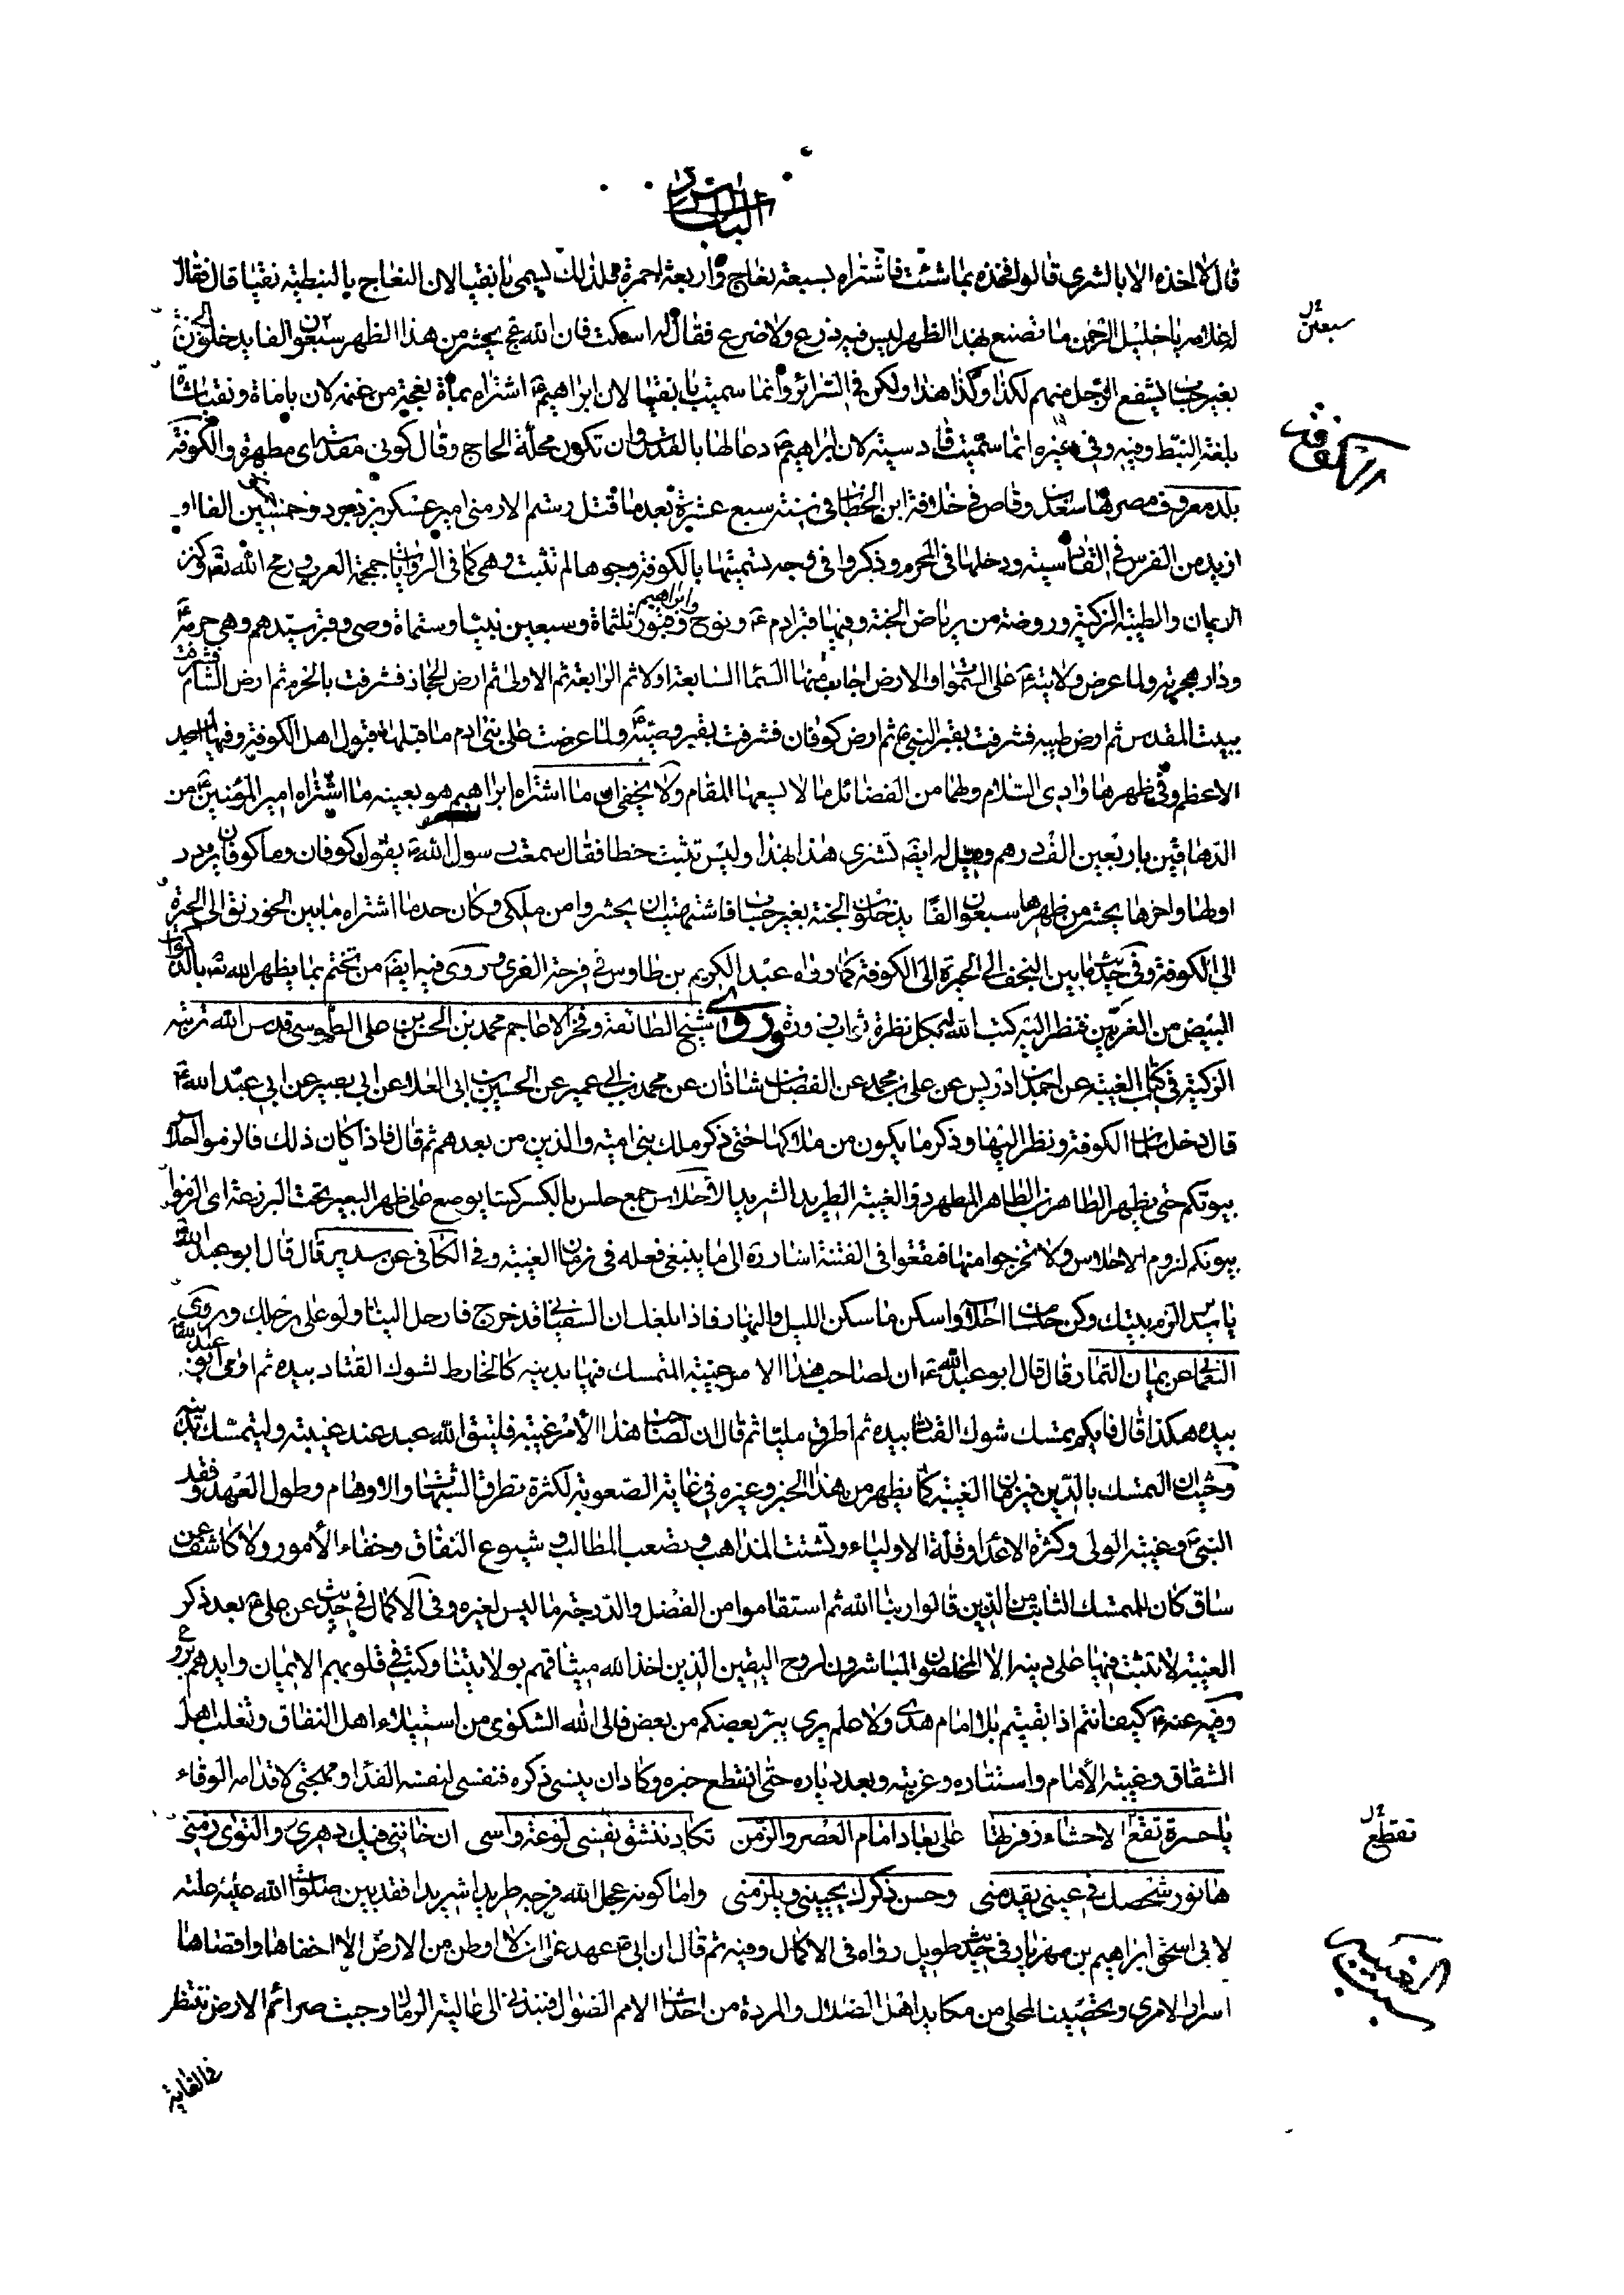 الباب الثاني
قال لا اخذه الا بالشرى قالوا فخذه بما شئت فاشتراه بسبعة نعاج واربعة احمرة فلذلك يسمى بانقيا لان النعاج بالنبطية نقيا قال فقال
له غلامه يا خليل الرحمن ما تصنع بهذا الظهر ليس فيه زرع ولا ضرع فقال له اسكت فان الله عج يحشر من هذا الظهر سبعون الفا يدخلون الجنة
سبعين ل
بغير حساب يشفع الرجل منهم لكذا وكذا هذا ولكن في السرائر وانما سميت بانقيا لان ابراهيم ع اشتراه بماة نعجة من غنمه لان با ماة ونقيا شاة
بلغة النبط وفيه وفي غيره انما سميت قادسية لان ابراهيم ع دعا لها بالقدس وان تكون محلة الحاج وقال كوني مقدسة اى مطهرة والكوفة
الكوفة
بلد معروف مصرها سعد بن وقاص في خلافة ابن الخطاب في سنة سبع عشرة بعد ما قتل رستم الارمنى امير عسكر يزدجرد وخمسين الفا او
ازيد من الفرس في القادسية ودخلها في المحرم وذكروا في وجه تسميتها بالكوفة وجوها لم تثبت وهى كما في الروايات جمجمة العرب ورمح الله تع وكنز
الايمان والطينة الزكية وروضة من رياض الجنة وفيها قبر ادم ع ونوح وابراهيم وقبور ثلثماة وسبعين نبيا وستماة وصى وقبر سيدهم وهى حرمه
ودار هجرته ولما عرض ولايته ع على السموات والارض اجاب منها السماء السابعة اولا ثم الرابعة ثم الاولى ثم ارض الحجاز فشرفت بالحرم ثم ارض الشام فشرفت
ببيت المقدس ثم ارض طيبة فشرفت بقبر النبي ص ثم ارض كوفان فشرفت بقبر وصيه ولما عرضت على بنى ادم ما قبلها قبول اهل الكوفة وفيها المسجد
الاعظم وفي ظهرها وادى السلام ولها من الفضائل ما لا يسعها المقام ولا يخفى ان ما اشتراه ابراهيم هو بعينه ما اشتراه امير المؤمنين ع من
الدهاقين باربعين الف درهم وقيل له ايضا تشترى هذا بهذا وليس تنبت حطا فقال سمعت رسول الله ص يقول كوفان وما كوفان يرد
اولها واخرها يحشر من ظهرها سبعون الفا يدخلون الجنة بغير حساب فاشتهيت ان يحشروا من ملكى وكان حد ما اشتراه ما بين الخورنق الى الحيرة
الى الكوفة وفي حديث ما بين النجف الى الحيرة الى الكوفة كما رواه عبد الكريم بن طاوس في فرحة الغرى وروى فيه ايضا من تختم بما يظهر الله تع بالذكوات
البيض من الغريين فنظر اليه كتب الله له بكل نظرة ثواب زورة وروى شيخ الطائفة وفخر الاعاجم محمد بن الحسن بن على الطوسي قدس الله تربته
الزكية في كتاب الغيبة عن احمد بن ادريس عن على بن محمد عن الفضل بن شاذان عن محمد بن ابى عمير عن الحسين بن ابى العلاء عن ابى بصير عن ابى عبد الله ع
قال دخل سلمان الكوفة ونظر اليها وذكر ما يكون من ملاكها حتى ذكر ملك بنى امية والذين من بعدهم ثم قال فاذا كان ذلك فالزموا احلاس
بيوتكم حتى يظهر الطاهر بن الطاهر المطهر ذو الغيبة الطريد الشريد الاحلاس جمع حلس بالكسر كساء يوضع على ظهر البعير تحت البرذعة اى الزموا
بيوتكم لزوم الاحلاس ولا تخرجوا منها فتقعوا في الفتنة اشارة الى ما ينبغى فعله في زمان الغيبة وفي الكافى عن سدير قال قال ابو عبد الله ع
يا سدير الزم بيتك وكن حلسا من احلاسه واسكن ما سكن الليل والنهار فاذا بلغك ان السفياني قد خرج فارحل الينا ولو على رجلك وروى
النعماني عن يمان التمار قال قال ابو عبد الله ع ان لصاحب هذا الامر غيبة المتمسك فيها بدينه كالخارط لشوك القتاد بيده ثم اومى ابو عبد الله ع
بيده هكذا قال فايكم يمسك شوك القتاد بيده ثم اطرق مليا ثم قال ان لصاحب هذا الأمر غيبة فليتق الله عبد عند غيبته وليتمسك بدينه
وحيث ان التمسك بالدين في زمان الغيبة كما يظهر من هذا الخبر وغيره في غاية الصعوبة لكثرة تطرق الشبهات والاوهام وطول العهد وفقد
النبى ص وغيبة الولى وكثرة الاعداء وقلة الاولياء وتشتت المذاهب وتصعب المطالب وشيوع النفاق وخفاء الأمور ولا كاشف عن
ساق كان للمتمسك الثابت من الذين قالوا ربنا الله ثم استقاموا من الفضل والدرجة ما ليس لغيره وفي الاكمال في حديث عن على ع بعد ذكر
الغيبة لا تثبت فيها على دينه الا المخلصون المباشرون لروح اليقين الذين اخذ الله ميثاقهم بولايتنا وكتب في قلوبهم الايمان وايدهم بروح
وفيه عنه ع كيف انتم اذا بقيتم بلا امام هدى ولا علم يرى يبرء بعضكم من بعض فالى الله الشكوى من استيلاء اهل النفاق وتغلب اهل
الشقاق وغيبة الأمام واستتاره وغربته وبعد دياره حتى انقطع خبره وكاد ان ينسى ذكره فنفسى لنفسه الفداء ومهجتى لاقدامه الوقاء
يا حسرة تقع الاحشاء زفرتها على بعاد امام العصر والزمن تكاد تنشق نفسى لوعة واسى ان خاننى فيك دهرى والنوى زمنى
تقطع ل
ها نور شخصك في عينى يقدمنى وحسن ذكرك يحيينى ويلزمنى واما كونه عجل الله فرجه طريدا شريدا فقد بين صلوات الله عليه علته
لابى اسحق ابراهيم بن مهزيار في حديث طويل رواه في الاكمال وفيه ثم قال ان ابى ع عهد الى ان لا اوطن من الارض الا اخفاها واقصاها
سبب الغيبة
اسرارا لامرى وتحصينا لمحلى من مكايد اهل الضلال والمردة من احداث الامم الضوال فنبذنى الى عالية الرمال وجبت صرائم الارض تنظر
في الغاية